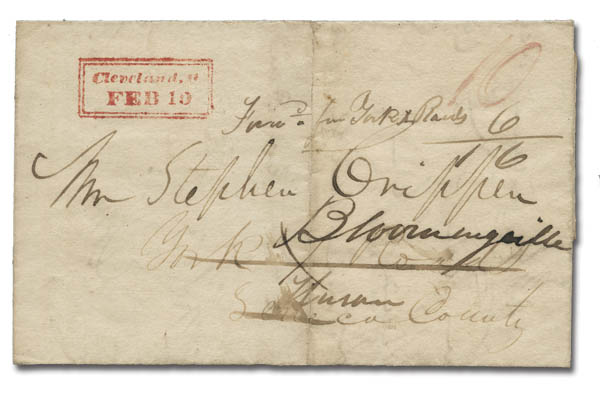 Cleveland, O
FEB 19
10
Forwd. from York X Roads 6
16
Mr Stephen Crippen
York Bloomingville
Huron
Seneca County